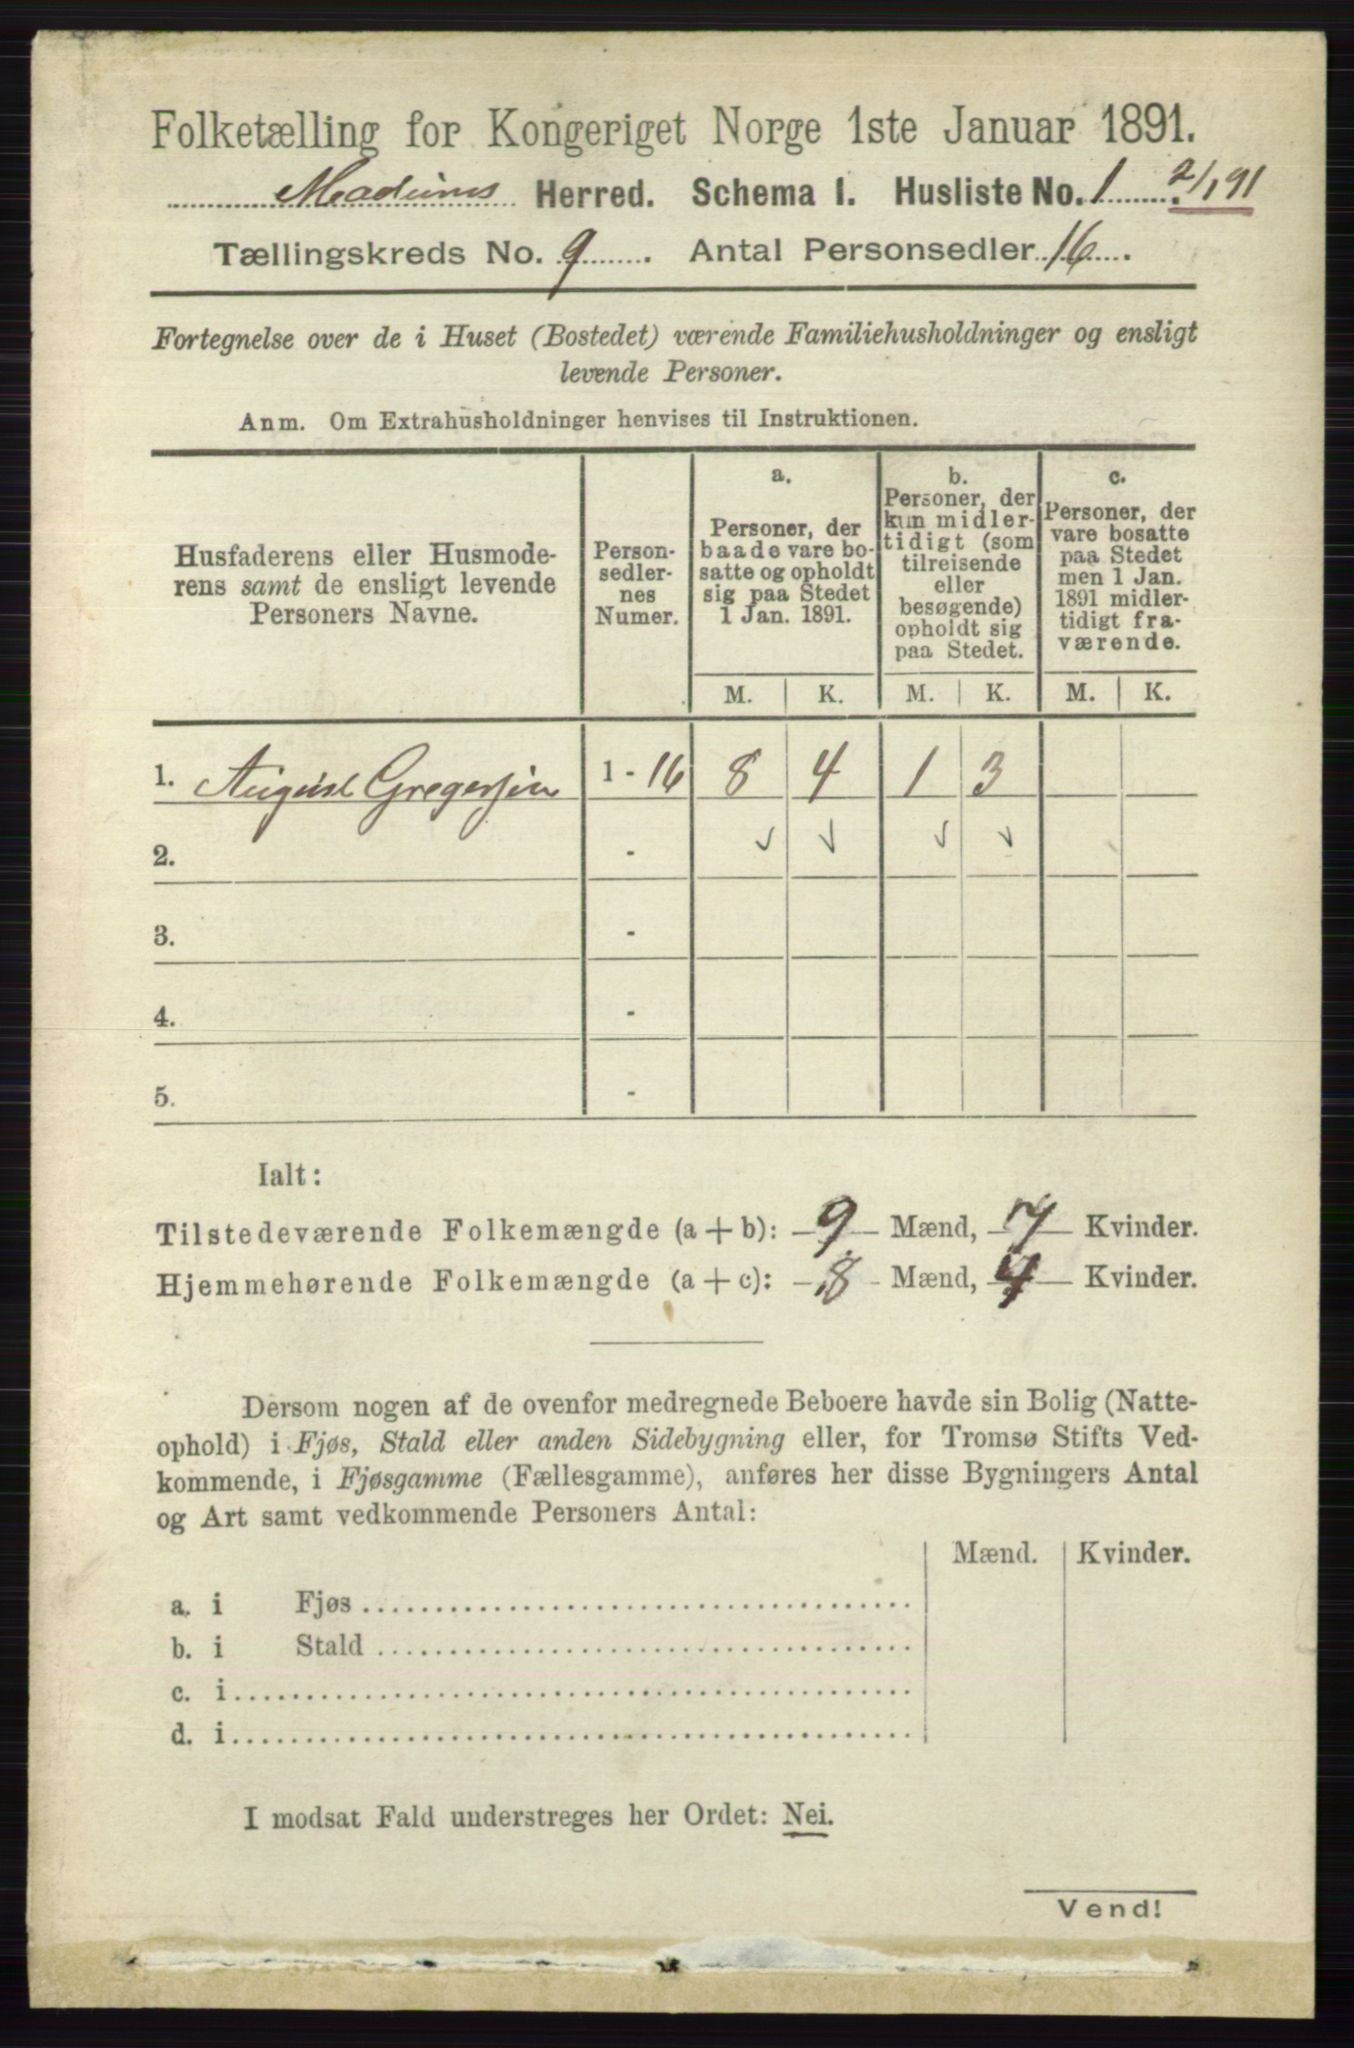 Folketælling for Kongeriget Norge 1ste Januar 1891.
Modums Herred. Schema I. Husliste No. 1 2/1 91
Tællingskreds No. 9. Antal Personsedler 16.
Fortegnelse over de i Huset (Bostedet) værende Familiehusholdninger og ensligt
levende Personer.
Anm. Om Extrahusholdninger henvises til Instruktionen.
Husfaderens eller Husmode-
rens samt de ensligt levende
Personers Navne.
Person-
sedler-
nes
Numer.
a.
Personer, der
baade vare bo-
satte og opholdt
sig paa Stedet
1 Jan. 1891.
b.
Personer, der
kun midler-
tidigt (som
tilreisende
eller
besøgende)
opholdt sig
paa Stedet.
c.
Personer, der
vare bosatte
paa Stedet
men 1 Jan.
1891 midler-
tidigt fra-
værende.
M. K. M. K. M. K.
1. August Gregersen 1 - 16 8 4 1 3
2. -
3. -
4. -
5. -
Ialt:
Tilstedeværende Folkemængde (a + b): 9 Mænd, 7 Kvinder.
Hjemmehørende Folkemængde (a + c): 8 Mænd, 4 Kvinder.
Dersom nogen af de ovenfor medregnede Beboere havde sin Bolig (Natte-
ophold) i Fjøs, Stald eller anden Sidebygning eller, for Tromsø Stifts Ved-
kommende, i Fjøsgamme (Fællesgamme), anføres her disse Bygningers Antal
og Art samt vedkommende Personers Antal:
Mænd. Kvinder.
a. i Fjøs
b. i Stald
c. i
d. i
I modsat Fald understreges her Ordet: Nei.
Vend!